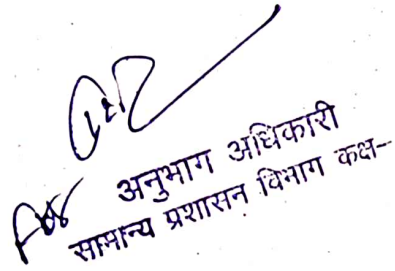 For
अनुभाग अधिकारी
सामान्य प्रशासन विभाग कक्ष-